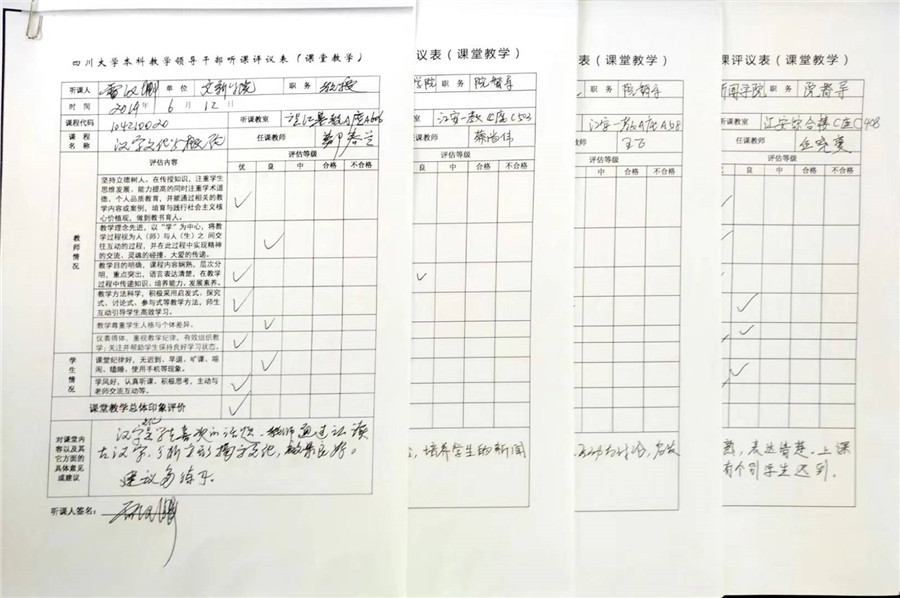 四川大学本科教学领导干部听课评议表（课堂教学）
听课人 单位 文新学院 职务 教授
时间 2019年 6月 12日
课程代码 1042100.20 听课教室
课程名称 汉字文化与 任课教师
评估内容 评估等级
优 良 中 合格 不合格
教师情况
坚持立德树人。在传授知识，注重学生
思维发展、能力提高的同时注重学术道
德、个人品质教育，并能通过相关的教
学内容或案例，培育与践行社会主义核
心价值观，做到教书育人。
教学理念先进，以“学”为中心，将教
学过程视为人（师）与人（生）之 间交
往互动的过程，并在此过程中实现精神
的交流、灵魂的碰撞、大爱的传递。
教学目的明确，课程内容娴熟，层次分
明，重点突出，语言表达清楚，在教学
过程中传递知识，培养能力，发展素养。
教学方法科学，积极采用启发式、探究
式、讨论式、参与式等教学方法，师生
互动引导学生高效学习。
教学尊重学生人格与个体差异。
仪表得体，重视教学纪律，有效组织教
学；关注并帮助学生保持良好学习状态。
学生情况
课堂纪律好，无迟到、早退、旷课、喧
闹、瞌睡、使用手机等现象。
学风好，认真听课、积极思考，主动与
老师交流互动等。
课堂教学总体印象评价
对课堂内
容以及其
它方面的
具体意见
或建议
教师通过
古汉字，分析字形 文化，效果良好。
建议多练习。
听课人签名：
议表（课堂教学）
学院 职务 院督导
室 江安一教C座C503
教师
评估等级
良 中 合格 不合格
，培养学生的新闻
表（课堂教学）
职务 院督导
江安一教A座A508
教师
评估等级
中 合格 不合格
课评议表（课堂教学）
新闻学院 职务 院督导
课教室 江安综合楼C座C408
任课教师
评估等级
优 良 中 合格 不合格
，表达清楚。上课
有个别学生迟到。